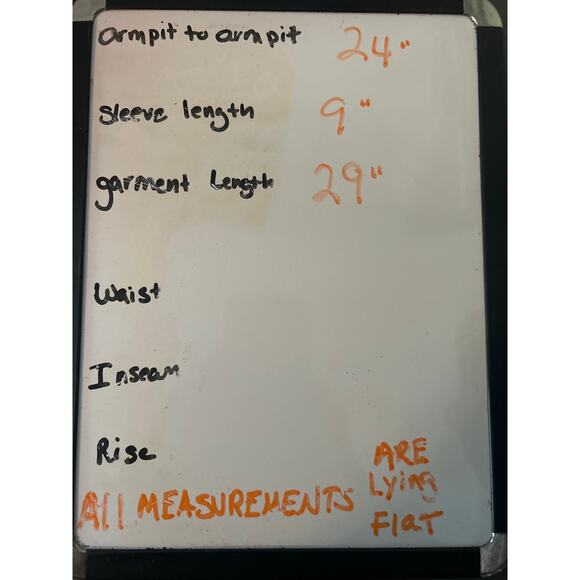 armpit to armpit 24"
Sleeve length 9"
garment Length 29"
Waist
Inseam
Rise
All MEASUREMENTS ARE
Lying
FlaT